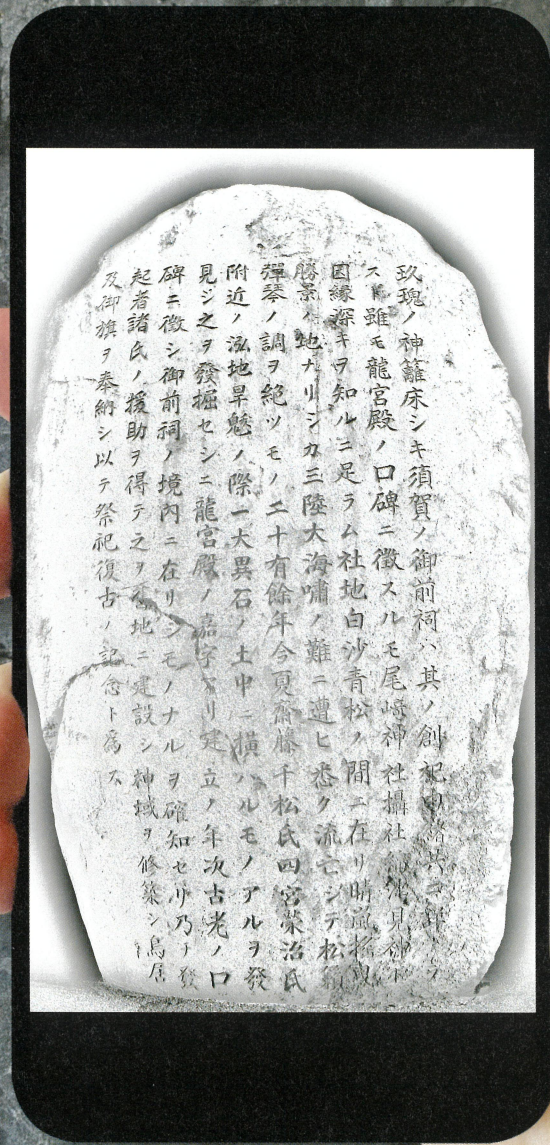 玖瑰ノ神籬床シキ須賀ノ御前祠ハ其ノ創祀由緒共ニ
スト雖モ龍宮殿ノ口碑ニ徴スルモ尾崎神社攝社
因縁深キヲ知ルニ足ラム社地白沙青松ノ間ニ在リ晴
勝景ノ地ナリシカ三陸大海嘯ノ難ニ遭ヒ悉ク流亡シテ松
彈琴ノ調ヲ絶ツモノ二十有餘年今夏齋藤千松氏四宮榮治氏
附近ノ泓地旱魃ノ際一大異石ノ土中ニ横ハルモノアルヲ發
見シ之ヲ發掘セシニ龍宮殿ノ嘉字アリ建立ノ年次古老ノ口
碑ニ徴シ御前祠ノ境内ニ在リシモノナルヲ確知セリ乃チ發
起者諸氏ノ援助ヲ得テ之ヲ舊地ニ建設シ神域ヲ修築シ鳥居
及御旗ヲ奉納シ以テ祭祀復古ノ記念ト爲ス